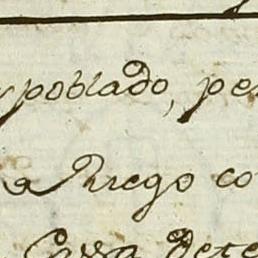 poblado, pe
a Riego co
Casa dete